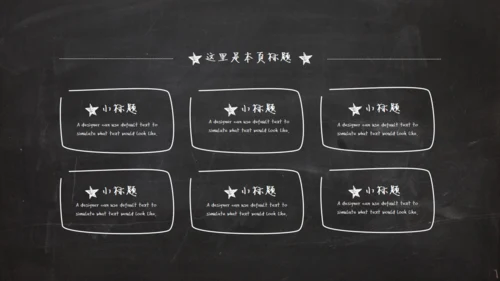 这里是本页标题
小标题
A designer can use default text to
simulate what text would look like.
小标题
A designer can use default text to
simulate what text would look like.
小标题
A designer can use default text to
simulate what text would look like.
小标题
A designer can use default text to
simulate what text would look like.
小标题
A designer can use default text to
simulate what text would look like.
小标题
A designer can use default text to
simulate what text would look like.